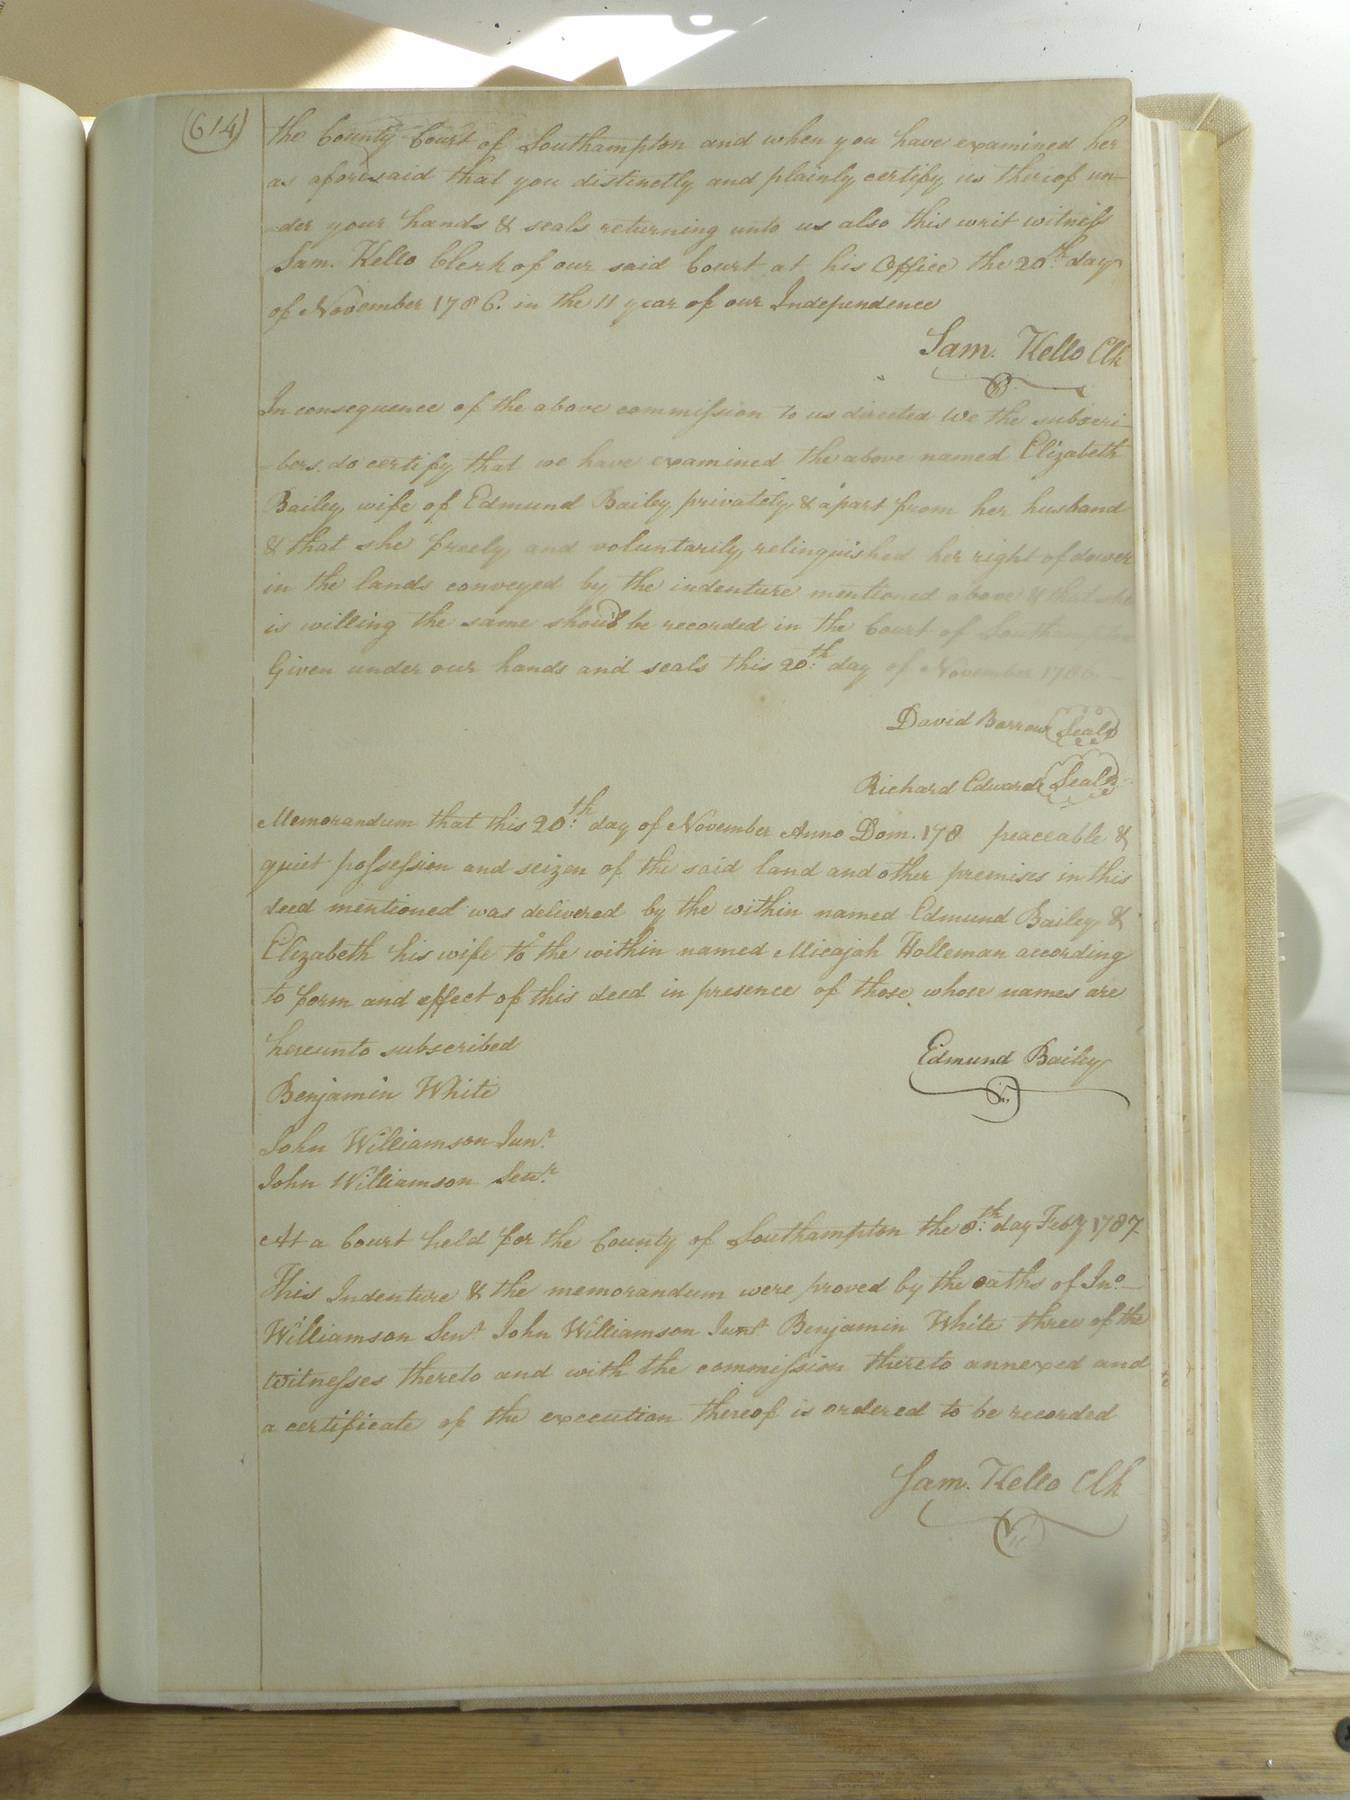 (614)
the County Court of Southampton and when you have examined her
as aforesaid that you distinctly and plainly certify us thereof un-
-der your hands & seals returning unto us also this writ witness
Sam. Kello Clerk of our said Court at his Office the 20th day
of November 1786. in the 11 year of our Independence
Sam. Kello Clk
In consequence of the above commission to us directed We the subscri-
-bers do certify that we have examined the above named Elizabeth
Bailey wife of Edmund Bailey privately & apart from her husband
& that she freely and voluntarily relinquished her right of dower
in the lands conveyed by the indenture mentioned above & that she
is willing the same shou'd be recorded in the Court of Southampton
Given under our hands and seals this 20th day of November 1786.—
David Barrow Seal
Richard Edwards Seal
Memorandum that this 20th day of November Anno Dom. 178 peaceable &
quiet possession and seizen of the said land and other premises in this
deed mentioned was delivered by the within named Edmund Bailey &
Elizabeth his wife to the within named Micajah Holleman according
to form and effect of this deed in presence of those whose names are
hereunto subscribed
Edmund Bailey
Benjamin White
John Williamson Junr.
John Williamson Senr.
At a Court held for the County of Southampton the 8th day Feby 1787
This Indenture & the memorandum were proved by the oaths of Jno—
Williamson Senr John Williamson Junr. Benjamin White three of the
witnesses thereto and with the commission thereto annexed and
a certificate of the execution thereof is ordered to be recorded
Sam. Kello Clk